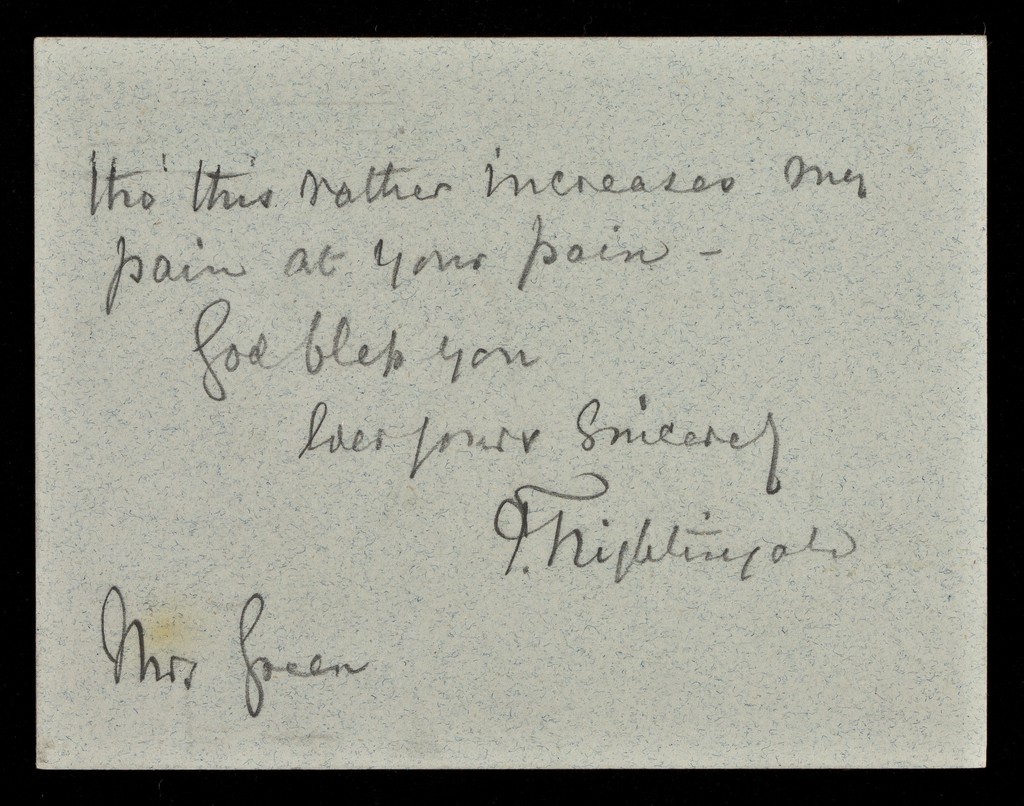 tho' this rather increases my
pain at your pain -
God bless you
ever yours sincerely
F. Nightingale
Mrs Green